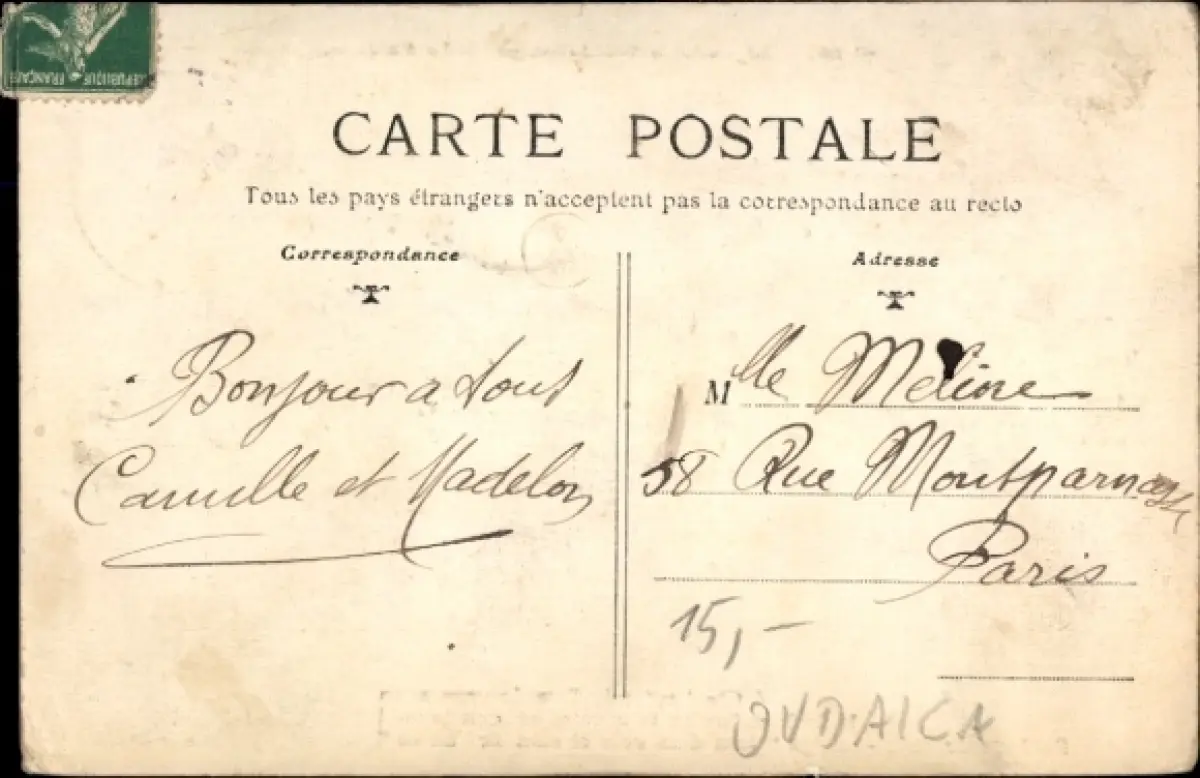 RÉPUBLIQUE FRANÇAISE
CARTE POSTALE
Tous les pays étrangers n'acceptent pas la correspondance au recto
Correspondance
Adresse
Bonjour a tous
Camille et Madelon
Mlle Meline
58 Rue Montparnasse
Paris
15,-
JUDAICA